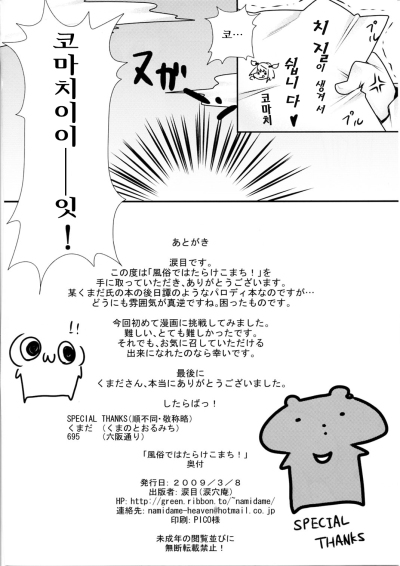 치질이 생겨서
쉽니다♥
코마치
プル
プル
코…
ヌガッ
코마치이이――잇!
あとがき
涙目です。
この度は「風俗ではたらけこまち!」を
手に取っていただき、ありがとうございます。
某くまだ氏の本の後日譚のようなパロディ本なのですが…
どうにも雰囲気が真逆ですね。困ったものです。
今回初めて漫画に挑戦してみました。
難しい、とても難しかったです。
それでも、お気に召していただける
出来になれたのなら幸いです。
最後に
くまださん、本当にありがとうございました。
したらばっ!
!!
SPECIAL THANKS(順不同・敬称略)
くまだ (くまのとおるみち)
695 (六阪通り)
「風俗ではたらけこまち!」
奥付
発行日:2009/3/8
出版者:涙目(涙穴庵)
HP:http://green.ribbon.to/~namidame/
連絡先:namidame-heaven@hotmail.co.jp
印刷:PICO様
未成年の閲覧並びに
無断転載禁止!
SPECIAL
THANKS